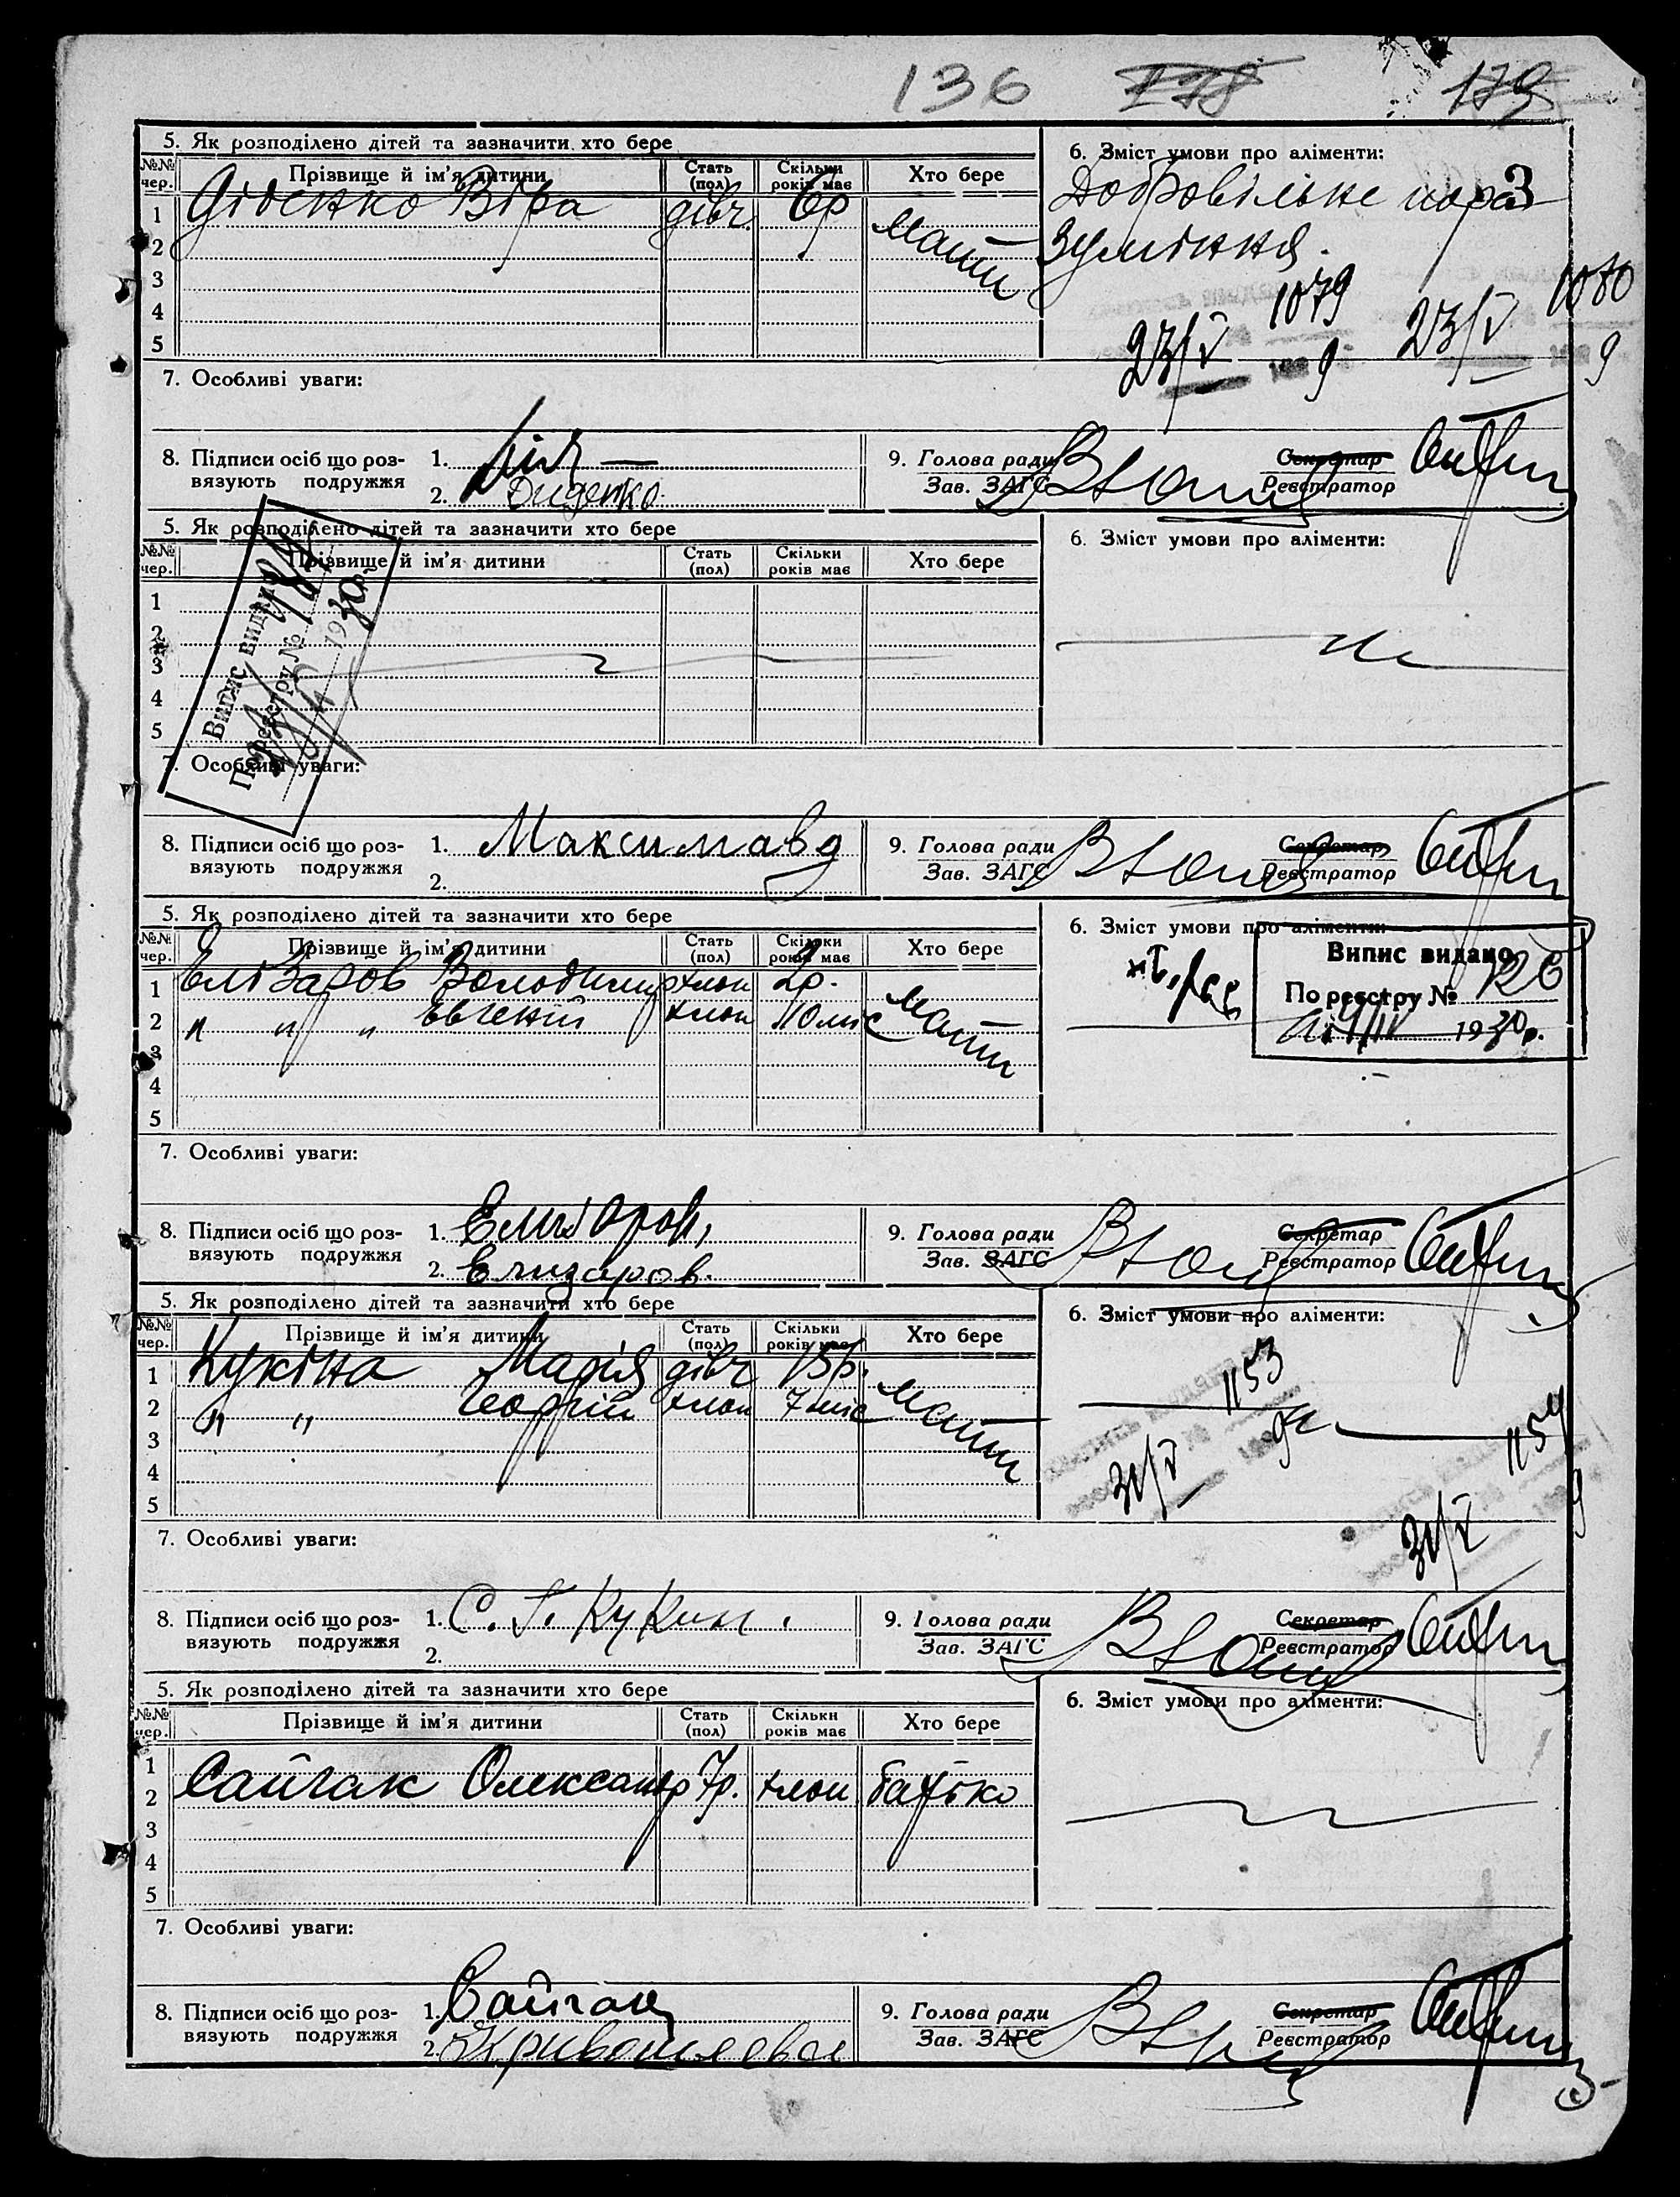 136 178 179
5. Як розподілено дітей та зазначити хто бере
6. Зміст умови про аліменти:
№№ чер. Прізвище й ім'я дитини Стать (пол) Скільки років має Хто бере
3
1 Діденко Віра дівч. 6р мати
Добровільне пораз
зуміння.
2
3
4
5
1079 1080
23/V 9 23/V 9
7. Особливі уваги:
8. Підписи осіб що роз-
вязують подружжя
1.
2. Диденко.
9. Голова ради
Зав. ЗАГС
Секретар
Реєстратор
5. Як розподілено дітей та зазначити хто бере
6. Зміст умови про аліменти:
№№ чер. Прізвище й ім'я дитини Стать (пол) Скільки років має Хто бере
1
2
3
4
5
Випис видано
По реєстру №
1930
7. Особливі уваги:
8. Підписи осіб що роз-
вязують подружжя
1. Максимов
2.
9. Голова ради
Зав. ЗАГС
Секретар
Реєстратор
5. Як розподілено дітей та зазначити хто бере
6. Зміст умови про аліменти:
№№ чер. Прізвище й ім'я дитини Стать (пол) Скільки років має Хто бере
1 Елізаров Володимир хлоп 2р. мати
2 " " " Евгений хлоп 10 міс
3
4
5
Випис видано
По реєстру № 126
1930р.
7. Особливі уваги:
8. Підписи осіб що роз-
вязують подружжя
1. Елизаров,
2. Елизаров.
9. Голова ради
Зав. ЗАГС
Секретар
Реєстратор
5. Як розподілено дітей та зазначити хто бере
6. Зміст умови про аліменти:
№№ чер. Прізвище й ім'я дитини Стать (пол) Скільки років має Хто бере
1 Кукіна Марія дівч 15р. мати
2 " " Георгій хлоп 7 міс
3
4
5
1153 1154
31/V 9 31/V 9
7. Особливі уваги:
8. Підписи осіб що роз-
вязують подружжя
1. С. Г. Кукин.
2.
9. Голова ради
Зав. ЗАГС
Секретар
Реєстратор
5. Як розподілено дітей та зазначити хто бере
6. Зміст умови про аліменти:
№№ чер. Прізвище й ім'я дитини Стать (пол) Скільки років має Хто бере
1
2 Сайчак Олександр 7р. хлоп батько
3
4
5
7. Особливі уваги:
8. Підписи осіб що роз-
вязують подружжя
1. Сайчак
2. Кривошеева
9. Голова ради
Зав. ЗАГС
Секретар
Реєстратор